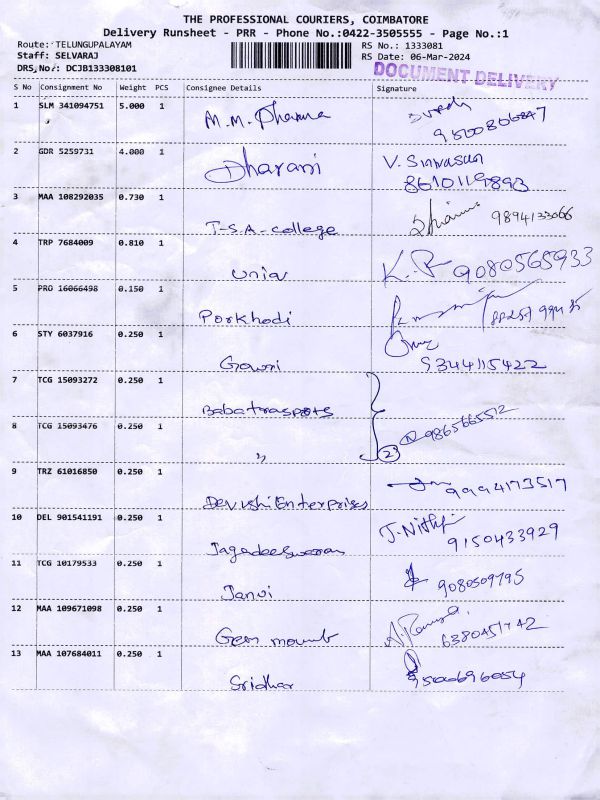 THE PROFESSIONAL COURIERS, COIMBATORE
Delivery Runsheet - PRR - Phone No.:0422-3505555 - Page No.:1
Route: TELUNGUPALAYAM
Staff: SELVARAJ
DRS.No.: DCJB133308101
RS No.: 1333081
RS Date: 06-Mar-2024
DOCUMENT DELIVERY
S No Consignment No Weight PCS Consignee Details Signature
1 SLM 341094751 5.000 1 M.M. Pharma
2 GDR 5259731 4.000 1 Dharani V. Srinivasan
8610119893
3 MAA 108292035 0.730 1 T.S.A. college 9894133066
4 TRP 7684009 0.810 1 Uniq K.P 9080565933
5 PRO 16066498 0.150 1 Porkhodi
6 STY 6037916 0.250 1 Gowri
9344115422
7 TCG 15093272 0.250 1 Babatrasports
8 TCG 15093476 0.250 1 " 2 9865665512
9 TRZ 61016850 0.250 1 Devishi Enterprises 9994173517
10 DEL 901541191 0.250 1 Jagadeeswaran J. Nithi
9150433929
11 TCG 10179533 0.250 1 Janvi 9080509795
12 MAA 109671098 0.250 1 Gem mount 6380451742
13 MAA 107684011 0.250 1 Sridhar